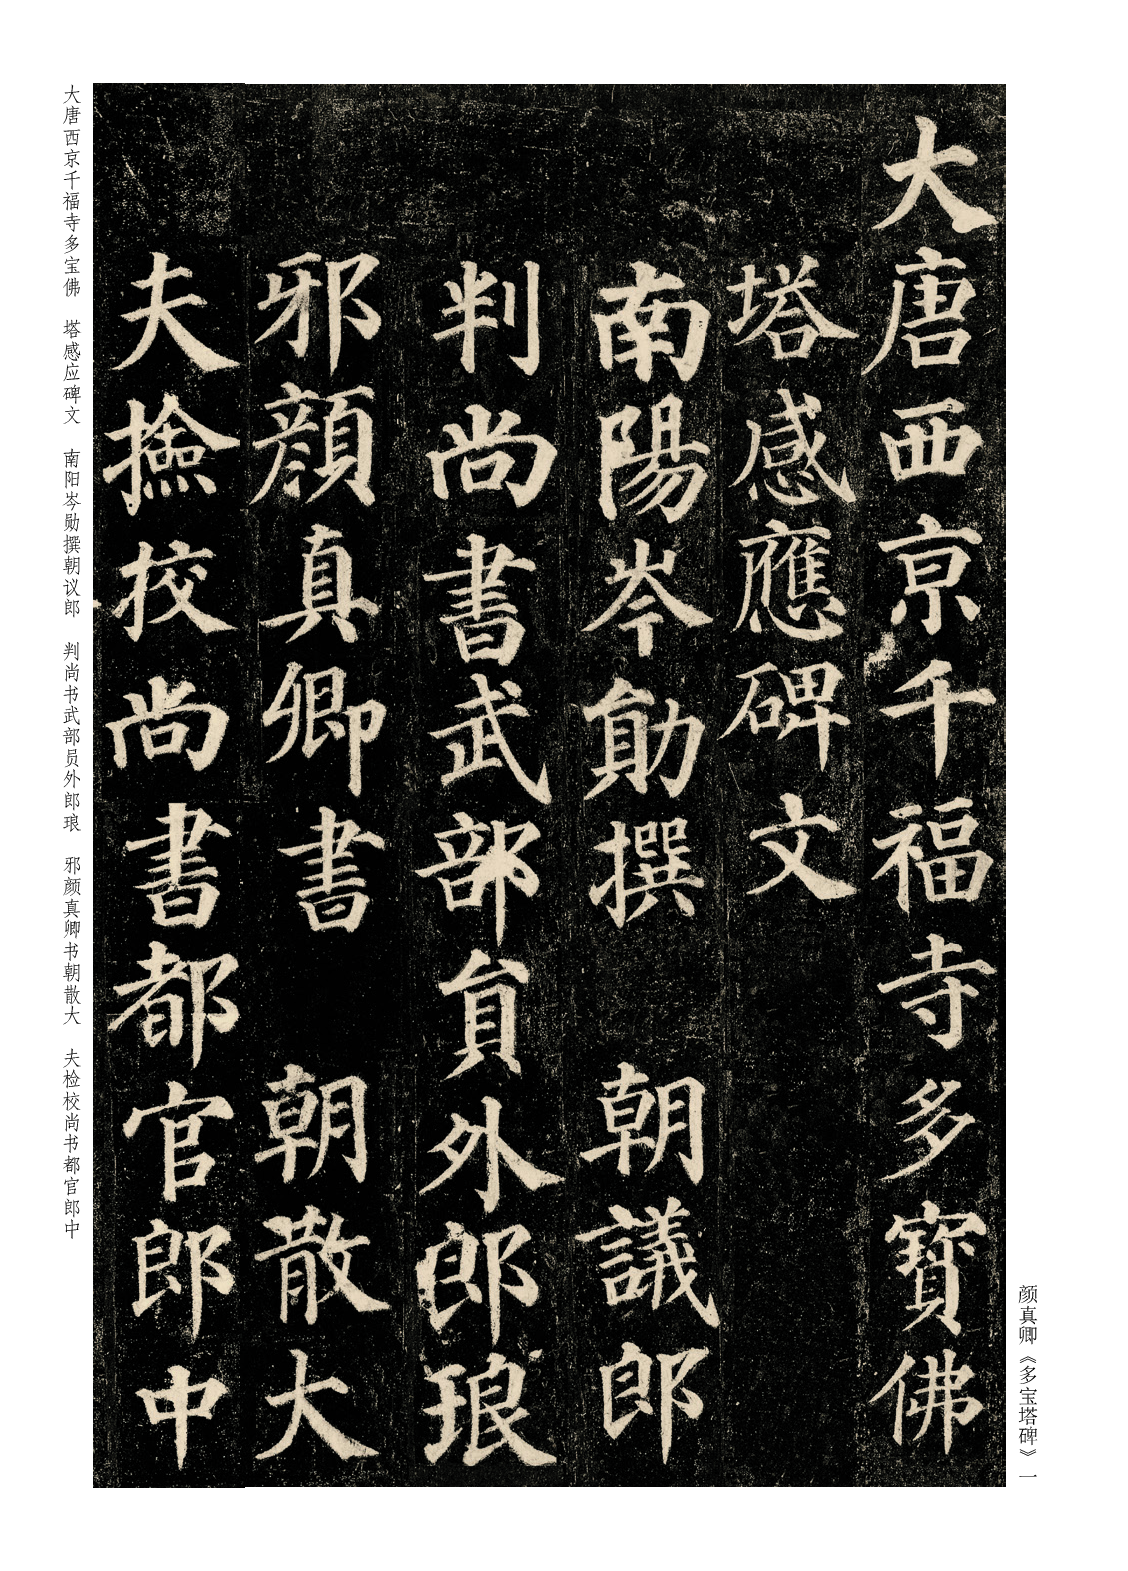 颜真卿《多宝塔碑》一
大唐西京千福寺多寶佛
塔感應碑文
南陽岑勛撰 朝議郎
判尚書武部員外郎琅
邪顏真卿書 朝散大
夫撿挍尚書都官郎中
大唐西京千福寺多宝佛 塔感应碑文 南阳岑勋撰朝议郎 判尚书武部员外郎琅 邪颜真卿书朝散大 夫检校尚书都官郎中